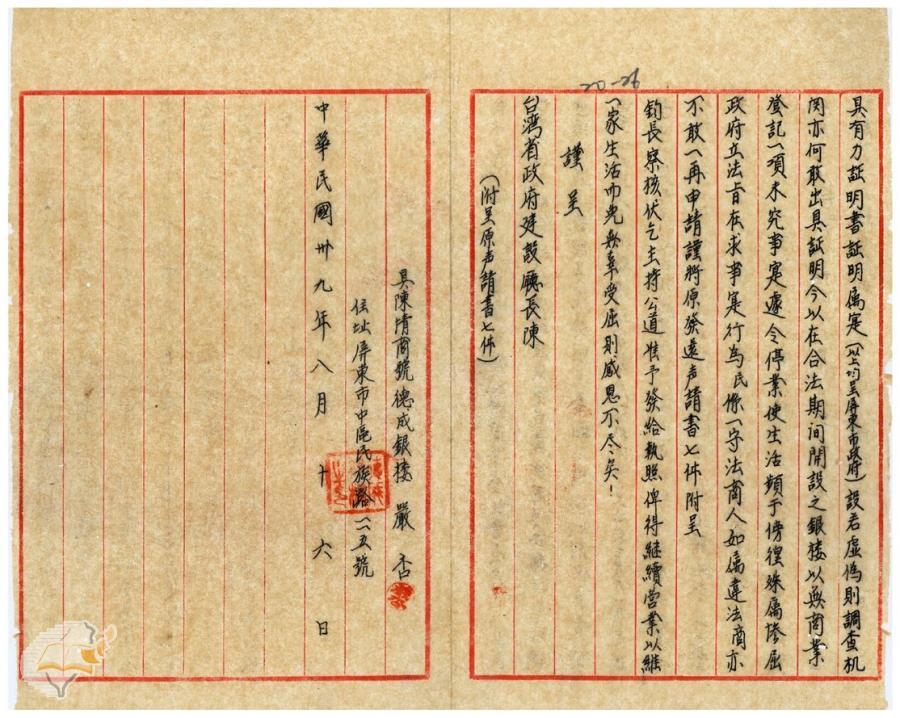 20-26
具有力証明書証明属寔(以上均呈屏東市政府)設若虛偽則調查机
関亦何敢出具証明今以在合法期间開設之銀楼以無商業
登記一項未究事寔遽令停業使生活頻于傍徨殊属惨屈
政府立法旨在求事寔行為民係一守法商人如属違法商亦
不敢一再申請謹将原發還声請書七件附呈
鈞長察核伏乞主持公道准予發給執照俾得継續営業以維
一家生活而免無辜受屈則感恩不尽矣!
謹呈
台湾省政府建設廳長陳
(附呈原声請書七件)
具陳情商號德成銀楼 嚴 杏
住址屏東市中區民族路一一五號
中華民國卅九年八月十六日